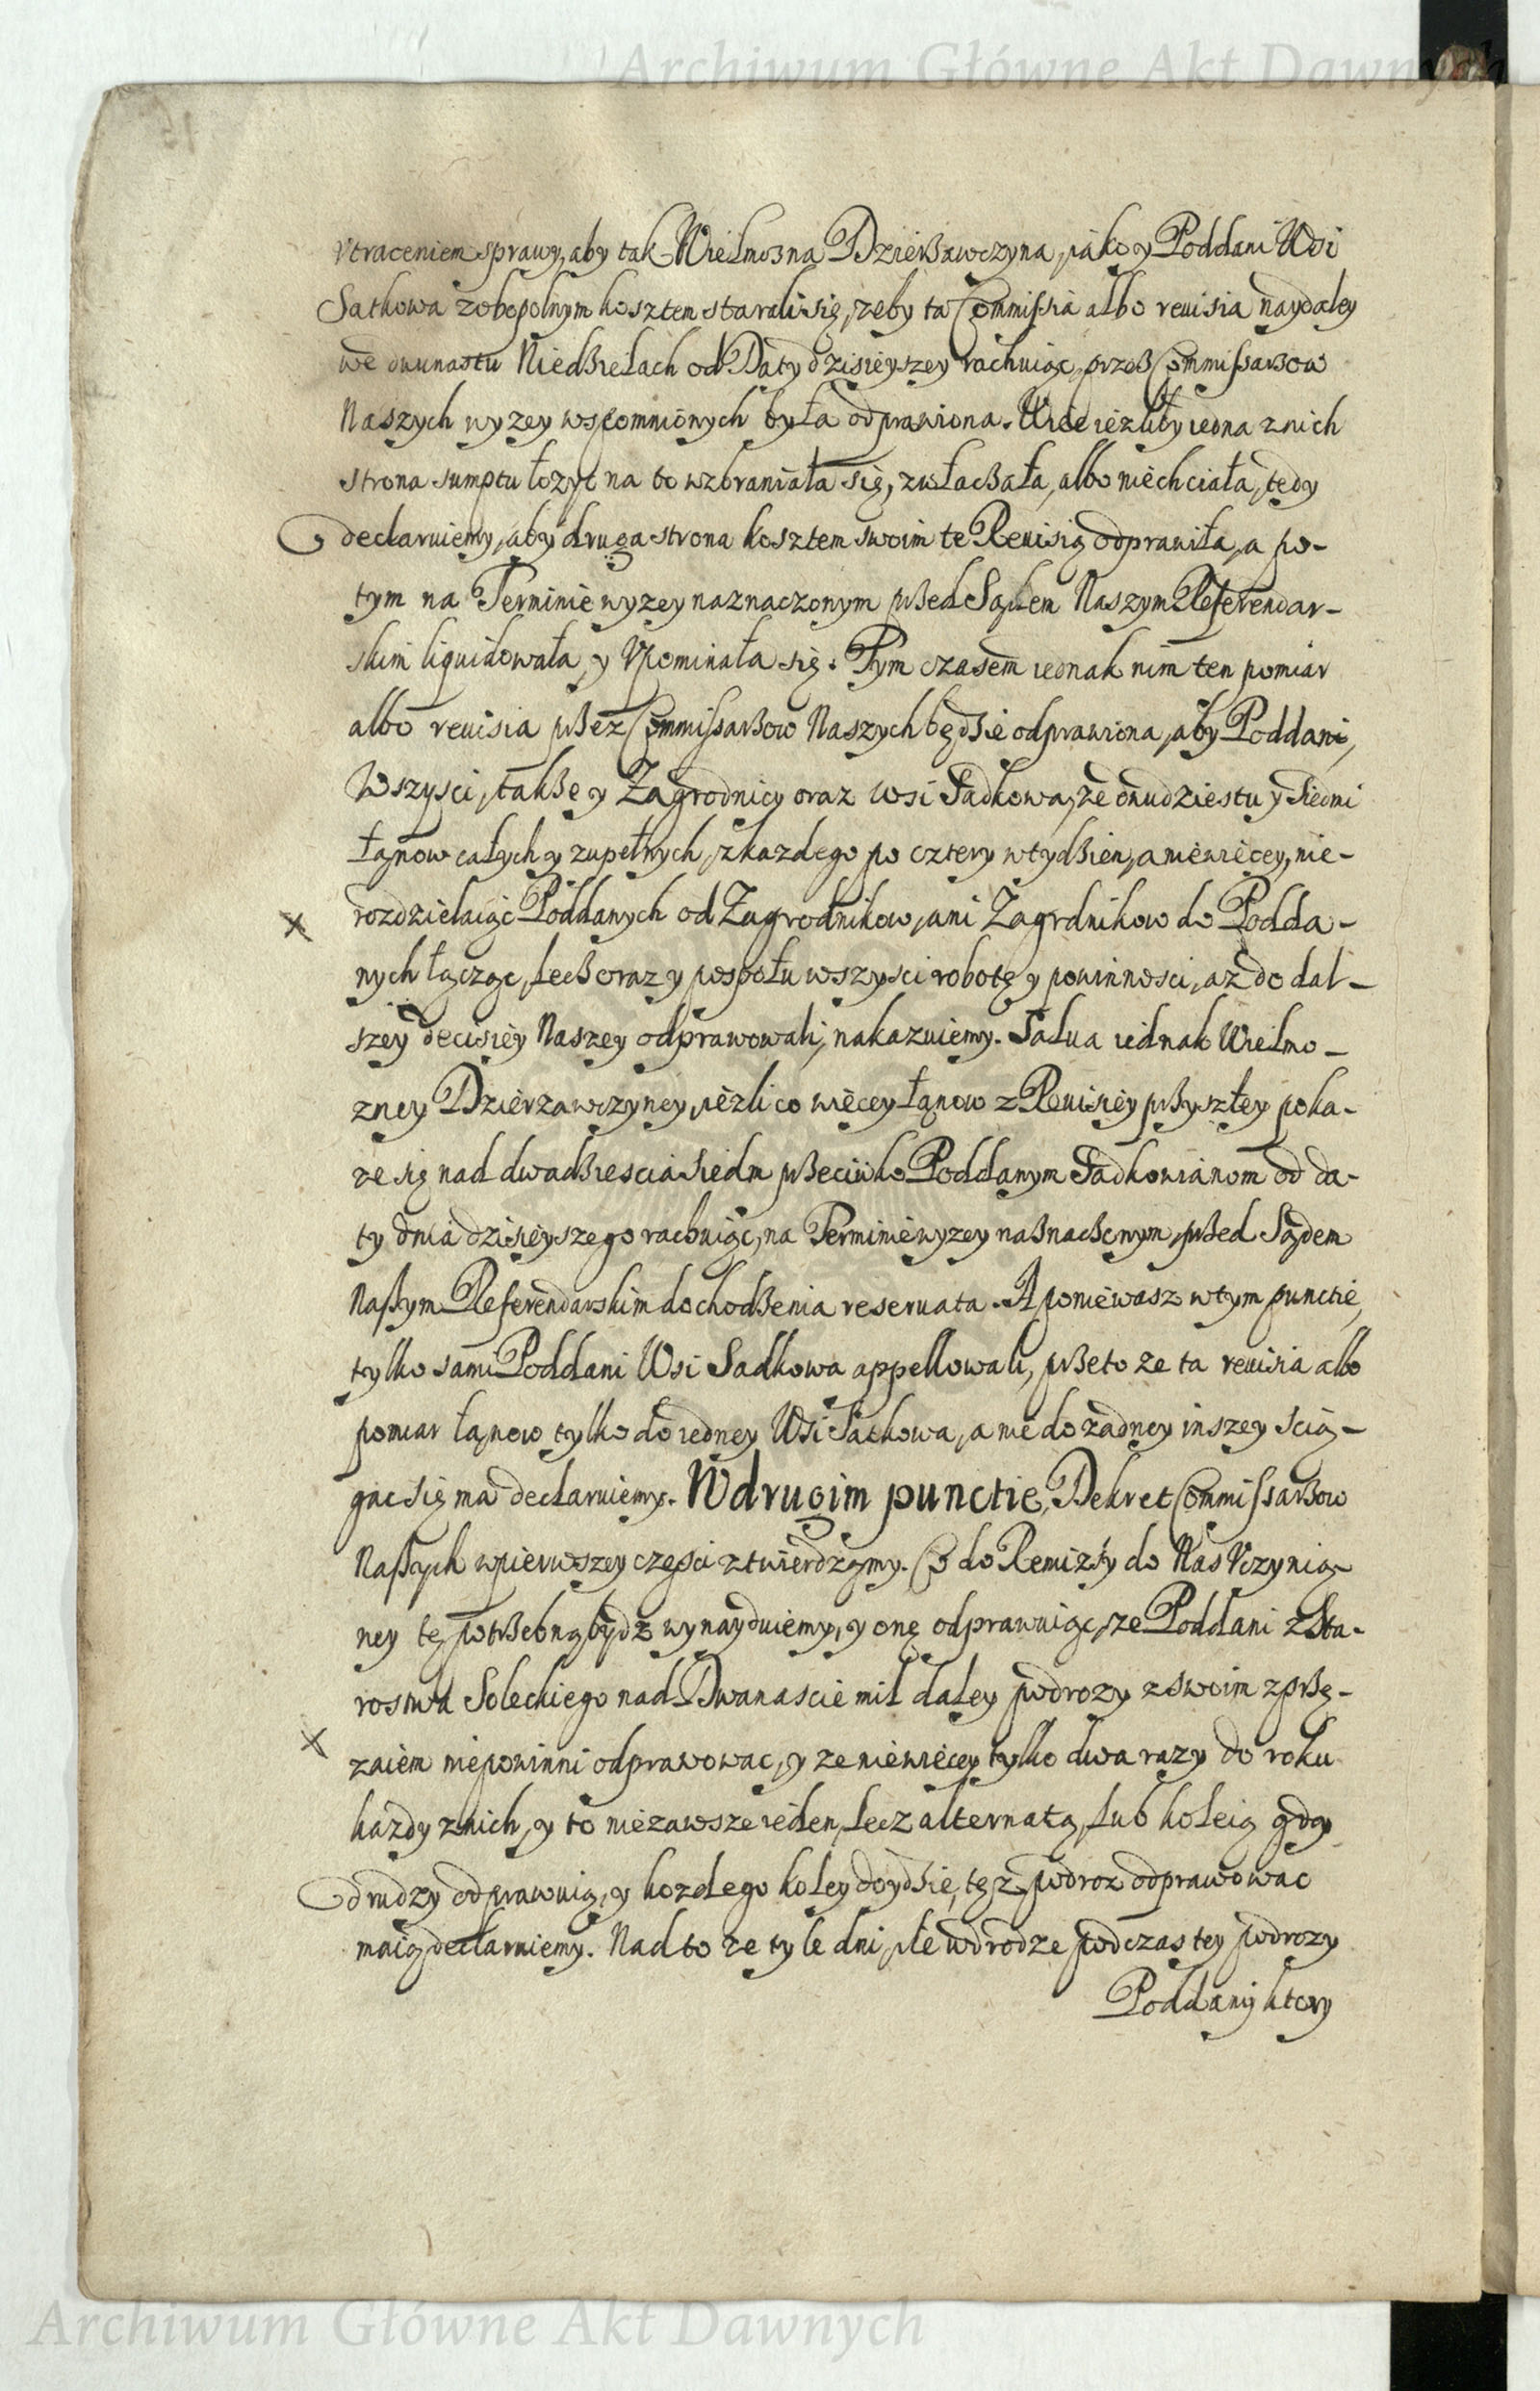 Archiwum Główne Akt Dawnych
Vtraceniem sprawy, aby tak Wielmozna Dzierzawczyna, iako y Poddani Wsi
Satkowa zobopolnym kosztem starali się, zeby ta Commissia albo reuisia naydaley
we dwunastu Niedzielach od Daty dzisieyszey rachuiąc, przez Commissarzow
Naszych wyzey wspomnionych była odprawiona. Wiec iezliby iedna z nich
strona sumptu łozyc na to wzbraniała się, zwłaczała, albo niechciała, tedy
declaruiemy, aby druga strona kosztem swoim te Reuisią odprawiła, a po-
tym na Terminie wyzey naznaczonym przed Sądem Naszym Referendar-
skim liquidowała, y Vpominała się. Tym czasem iednak nim ten pomiar
albo reuisia przez Commissarzow Naszych będzie odprawiona, aby Poddani,
Wszysci, takze y Zagrodnicy oraz wsi Sadkowa, ze dwudziestu y siedmi
łąnow całych y zupełnych, z kazdego po cztery w tydzien, a niewięcey, nie-
rozdzielaiąc Poddanych od Zagrodnikow, ani Zagrdnikow do Podda-
nych łącząc, lecz oraz y pospołu wszysci robotę y powinnosci, az do dal-
szey decisiey Naszey odprawowali, nakazuiemy. Salua iednak Wielmo-
zney Dzierzawczyney, iezli co więcey łąnow z Reuisiey przyszłey poka-
ze się nad dwadziescia siedm przeciwko Poddanym Sadkowianom od da-
ty dnia dzisieyszego rachuiąc, na Terminie wyzey naznaczonym, przed Sądem
Naszym Referendarskim dochodzenia reseruata. A poniewasz w tym punctie,
tylko sami Poddani Wsi Sadkowa appellowali, przeto ze ta reuisia albo
pomiar łąnow tylko do iedney Wsi Satkowa, a nie do zadney inszey scią-
gac się ma declaruiemy. W drugim punctie, Dekret Commissarzow
Naszych w pierwszey częsci ztwierdzamy. Co do Remizsy do Nas Vczynio-
ney tę potrzebną bydz wynayduiemy, y onę odprawuiąc, ze Poddani z Sta-
rostwa Soleckiego nad Dwanascie mil daley podrozy z swoim zprzę-
zaiem niepowinni odprawowac, y ze niewięcey tylko dwa razy do roku
kazdy z nich, y to niezawsze ieden, lecz alternatą, lub koleią gdy
drudzy odprawuią, y kozdego koley doydzie, tęz podroz odprawowac
maią declaruiemy. Nad to ze tyle dni, ile w drodze podczas tey podrozy
Poddany ktory
Archiwum Główne Akt Dawnych